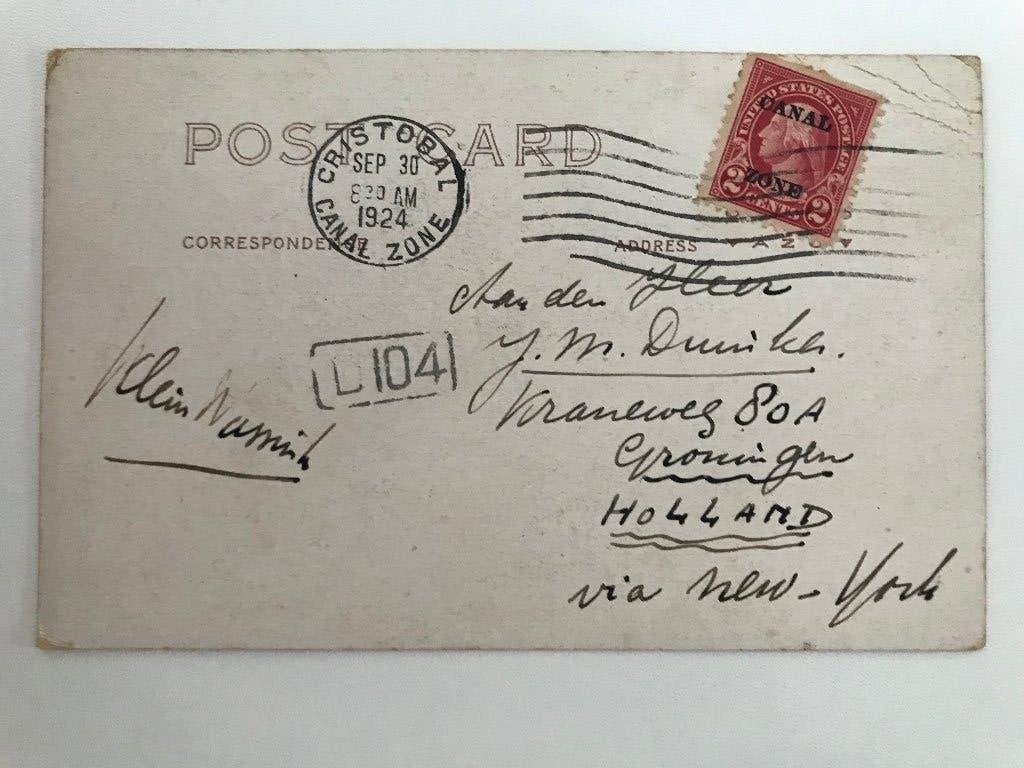 POST CARD
CRISTOBAL
SEP 30
8 30 AM
1924
CANAL ZONE
UNITED STATES POSTAGE
CANAL
ZONE
2 CENTS 2
CORRESPONDENCE
ADDRESS
AZO
Aan den Heer
J. M. Duinker.
Kraneweg 80A
Groningen
HOLLAND
via New-York
L 104
Klein